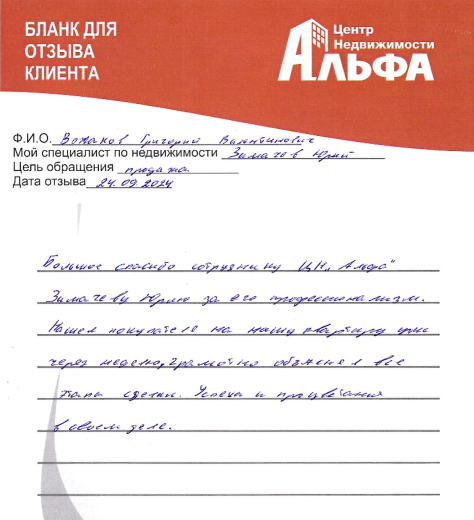 БЛАНК ДЛЯ
ОТЗЫВА
КЛИЕНТА
Центр
Недвижимости
АЛЬФА
Ф.И.О. Вожаков Григорий Валентинович
Мой специалист по недвижимости Зимачев Юрий
Цель обращения продажа
Дата отзыва 24.09.2024
Большое спасибо сотруднику ЦН "Альфа"
Зимачеву Юрию за его профессионализм.
Нашел покупателя на нашу квартиру уже
через неделю, грамотно объяснил все
этапы сделки. Успеха и процветания
в своем деле.